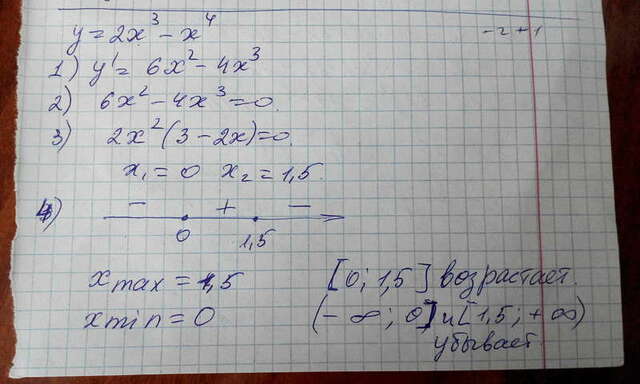 y = 2x³ - x⁴
-2+1
1) y' = 6x² - 4x³
2) 6x² - 4x³ = 0.
3) 2x²(3 - 2x) = 0.
x₁ = 0 x₂ = 1,5.
4)
- + -
0 1,5
x max = 1,5
[0; 1,5] возрастает.
x min = 0
(-∞; 0] и [1,5; +∞)
убывает.